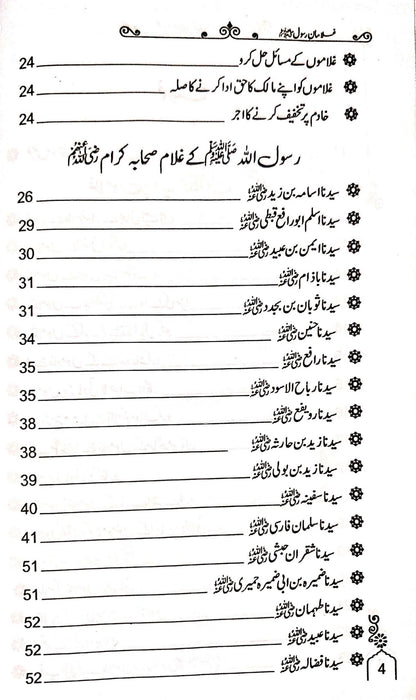 غلامان رسول ﷺ
غلاموں کے مسائل حل کرو 24
غلاموں کو اپنے مالک کا حق ادا کرنے کا صلہ 24
خادم پر تخفیف کرنے کا اجر 24
رسول اللہ ﷺ کے غلام صحابہ کرام رضی اللہ عنہم
سیدنا اسامہ بن زید رضی اللہ عنہ 26
سیدنا اسلم ابو رافع قبطی رضی اللہ عنہ 29
سیدنا ایمن بن عبید رضی اللہ عنہ 30
سیدنا باذام رضی اللہ عنہ 31
سیدنا ثوبان بن بجدد رضی اللہ عنہ 31
سیدنا حنین رضی اللہ عنہ 34
سیدنا رافع رضی اللہ عنہ 35
سیدنا رباح الاسود رضی اللہ عنہ 35
سیدنا رویفع رضی اللہ عنہ 38
سیدنا زید بن حارثہ رضی اللہ عنہ 38
سیدنا زید بن بولی رضی اللہ عنہ 39
سیدنا سفینہ رضی اللہ عنہ 40
سیدنا سلمان فارسی رضی اللہ عنہ 41
سیدنا شقران حبشی رضی اللہ عنہ 51
سیدنا ضمیرہ بن ابی ضمیرہ حمیری رضی اللہ عنہ 51
سیدنا طہمان رضی اللہ عنہ 52
سیدنا عبید رضی اللہ عنہ 52
سیدنا فضالہ رضی اللہ عنہ 52
4